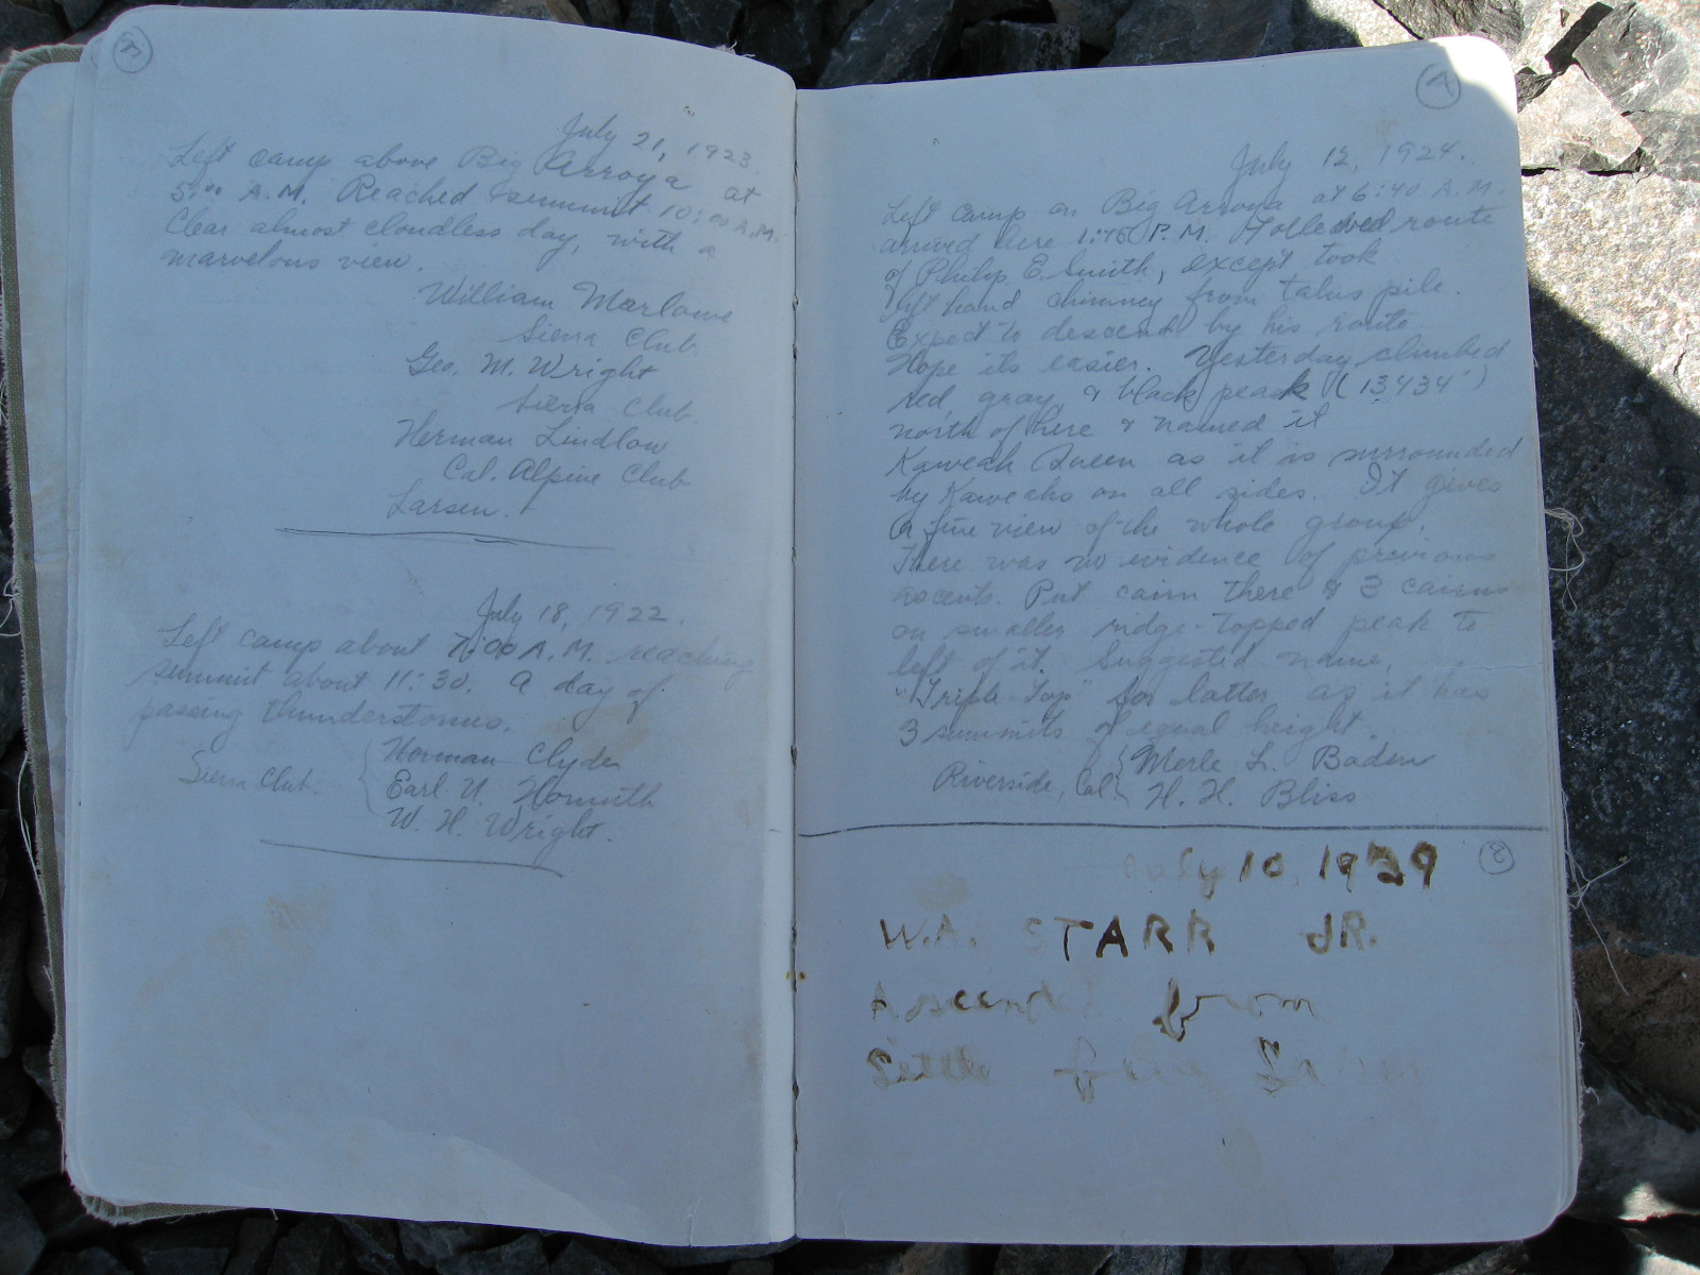 July 21, 1923
Left camp above Big Arroya at
5:00 A.M. Reached summit 10:00 A.M.
Clear almost cloudless day, with a
marvelous view.
William Marlowe
Sierra Club.
Geo. M. Wright
Sierra Club.
Herman Lindlow
Cal. Alpine Club
Larsen.
July 18, 1922.
Left camp about 7:00 A.M. reaching
summit about 11:30. A day of
passing thunderstorms.
Sierra Club.
Norman Clyde
Earl U. Homuth
W. H. Wright.
7
July 12, 1924.
Left camp on Big Arroya at 6:40 A.M.
arrived here 1:45 P.M. Followed route
of Philip E. Smith, except took
left hand chimney from talus pile.
Expect to descend by his route
Hope its easier. Yesterday climbed
red, gray, & black peak (13434')
north of here & named it
Kaweah Queen as it is surrounded
by Kaweahs on all sides. It gives
a fine view of the whole group.
There was no evidence of previous
ascents. Put cairn there & 3 cairns
on smaller ridge-topped peak to
left of it. Suggested name,
"Triple Top" for latter as it has
3 summits of equal height.
Riverside, Cal.
Merle L. Baden
H. H. Bliss
8
July 10, 1929
W.A. STARR JR.
Ascended from
Little Five Lakes